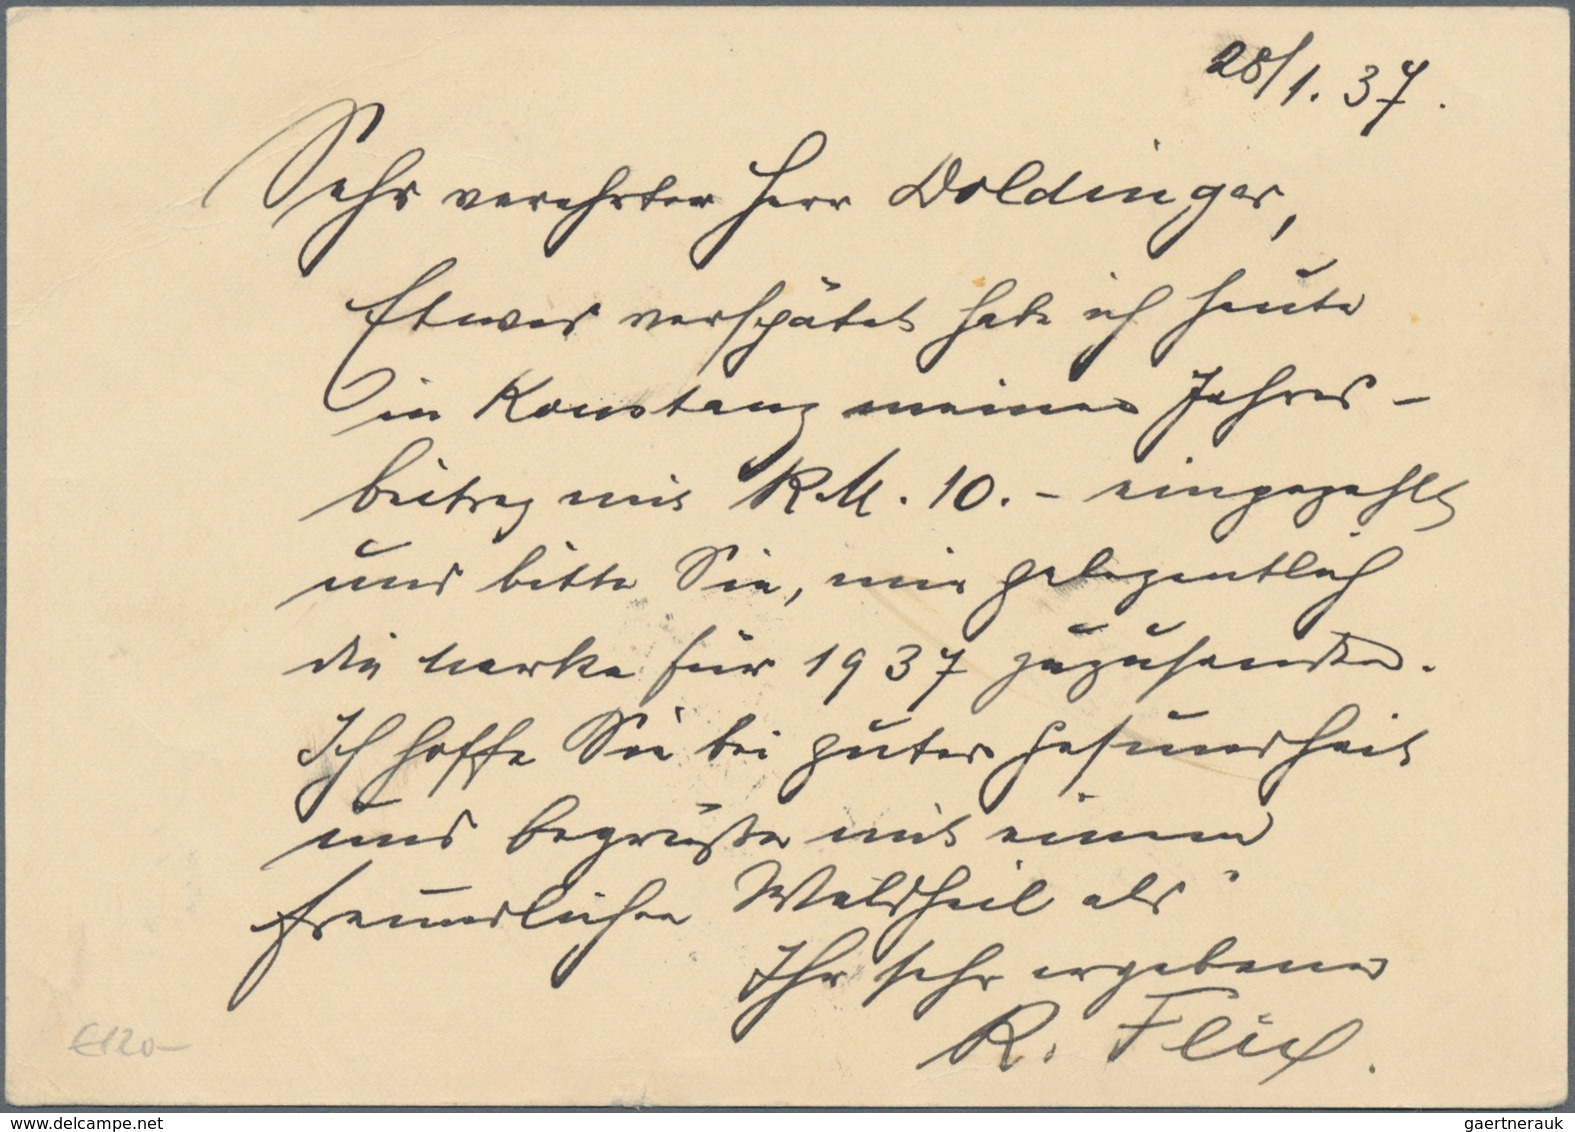 28/1. 37.
Sehr verehrter Herr Doldinger,
Etwas verspätet habe ich heute
in Konstanz meinen Jahres-
beitrag mit RM. 10.- eingezahlt
und bitte Sie, mir gelegentlich
die Marke für 1937 zuzusenden.
Ich hoffe Sie bei guter Gesundheit
und begrüße mit einem
freundlichen Waldheil als
Ihr sehr ergebener
R. Flix.
€120-
www.delcampe.net
gaertnerauk